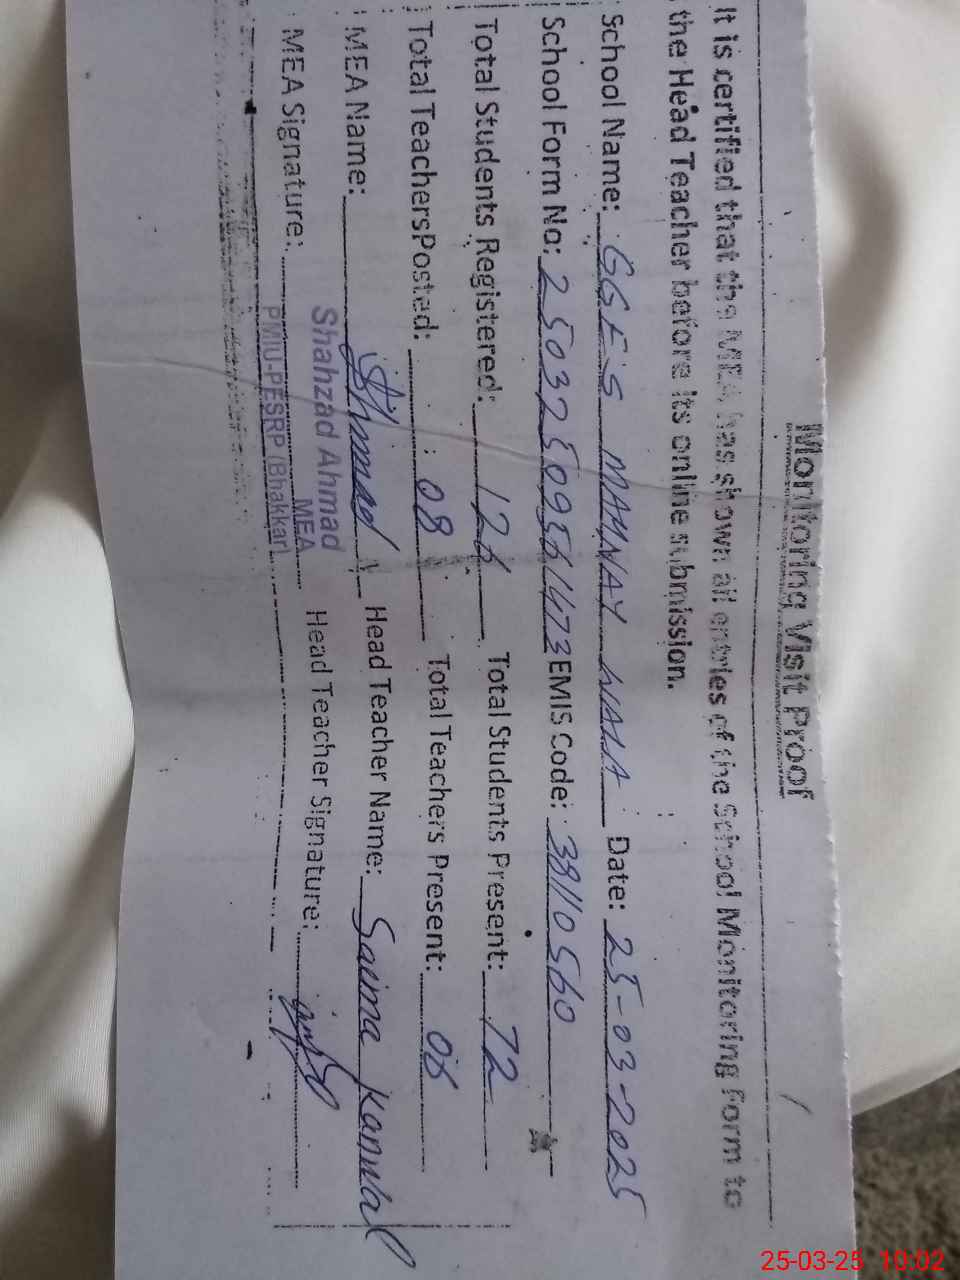 Monitoring Visit Proof
It is certified that the MEA has shown all entries of the School Monitoring Form to
the Head Teacher before its online submission.
School Name: GGES MAHNAY WALA Date: 25-03-2025
School Form No: 25032509561473 EMIS Code: 38110560
Total Students Registered: 126 Total Students Present: 72
Total Teachers Posted: 08 Total Teachers Present: 08
MEA Name: Ahmad Head Teacher Name: Saima Kanwal
MEA Signature: Shahzad Ahmad Head Teacher Signature:
MEA
PMIU-PESRP (Bhakkar)
25-03-25 10:02